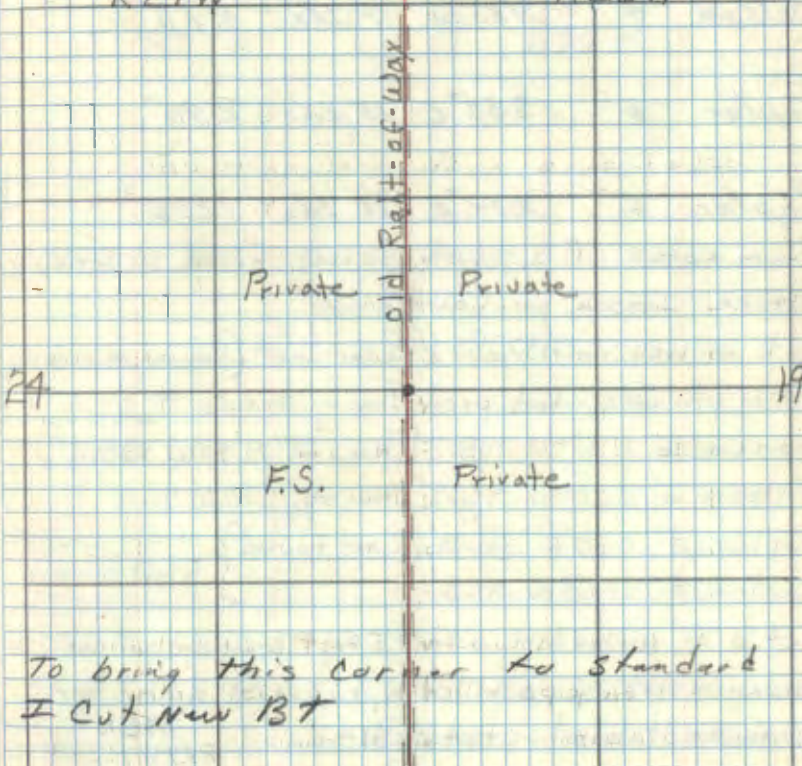 old Right-of-Way
Private
Private
24
19
F.S.
Private
To bring this corner to standard
I Cut New BT